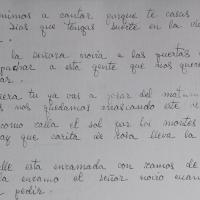 nimos a cantar porque te casas
Dios que tengas suerte en la vid
la señora novia a las puertas
char a esta gente que nos quere
ar.
era tu ya vas a gozar del matrim
s nos quedamos mascando este
como calla el sol por los montes
ay que carita de rosa lleva la
lle esta enramada con ramos de
la encamo el señor novio
pedir.